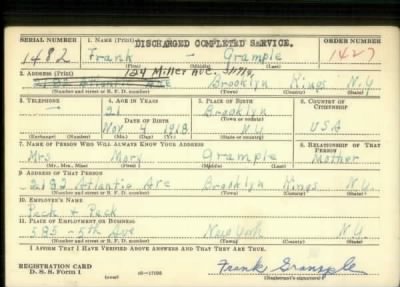 DISCHARGED COMPLETED SERVICE.
SERIAL NUMBER 1. NAME (Print) ORDER NUMBER
1482 Frank — Grample 1427
(First) (Middle) (Last)
124 Miller Ave.
2. ADDRESS (Print)
2182 Atlantic Ave Brooklyn Kings N.Y.
(Number and street or R. F. D. number) (Town) (County) (State)
3. TELEPHONE 4. AGE IN YEARS 5. PLACE OF BIRTH 6. COUNTRY OF CITIZENSHIP
— 21 Brooklyn
DATE OF BIRTH (Town or county)
Nov 9 1918 N.Y. USA
(Exchange) (Number) (Mo.) (Day) (Yr.) (State or country)
7. NAME OF PERSON WHO WILL ALWAYS KNOW YOUR ADDRESS 8. RELATIONSHIP OF THAT PERSON
Mrs Mary Grample Mother
(Mr., Mrs., Miss) (First) (Middle) (Last)
9. ADDRESS OF THAT PERSON
2182 Atlantic Ave Brooklyn Kings N.Y.
(Number and street or R. F. D. number) (Town) (County) (State)
10. EMPLOYER'S NAME
Peck & Peck
11. PLACE OF EMPLOYMENT OR BUSINESS
585 - 5th Ave New York N.Y.
(Number and street or R. F. D. number) (Town) (County) (State)
I AFFIRM THAT I HAVE VERIFIED ABOVE ANSWERS AND THAT THEY ARE TRUE.
REGISTRATION CARD
D. S. S. Form 1 (over) 16—17105 Frank Grample
(Registrant's signature)